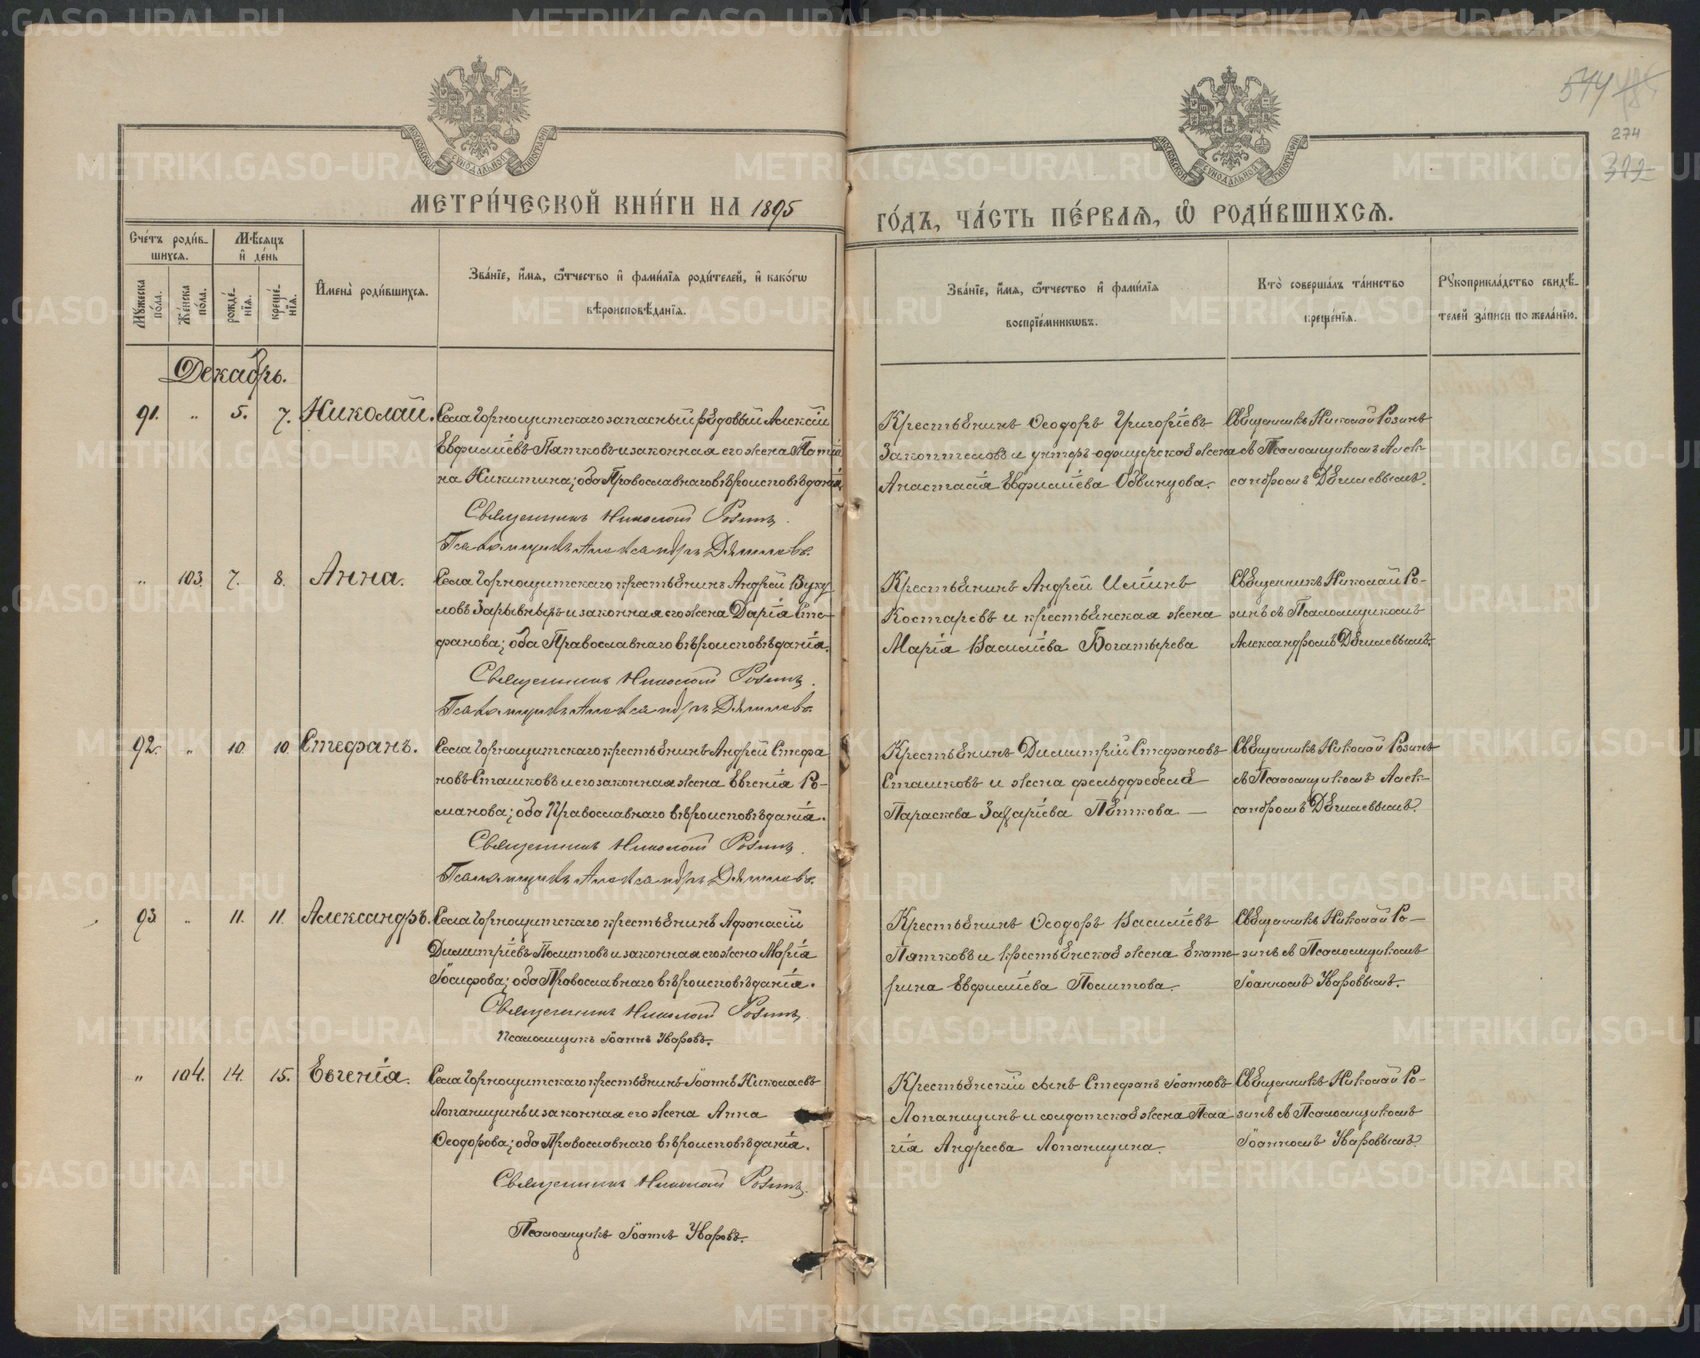 544
274
МЕТРИ́ЧЕСКОЙ КНИ́ГИ НА 1895
ГО́ДЪ, ЧА́СТЬ ПЕ́РВАѦ, Ѽ РОДИ́ВШИХСѦ.
Сче́тъ роди́в-
шихся.
Мѣ́сяцъ
и҆ де́нь
Мꙋжеска по́ла.
Же́нска по́ла.
рожде́-
нїѧ.
креще́-
нїѧ.
И҆мена̀ роди́вшихсѧ.
Зва́нїе, и҆́мя, ѻ҆́тчество и҆ фами́лїѧ роди́телей, и҆ како́гѡ
вѣроисповѣ́данїѧ.
Зва́нїе, и҆́мя, ѻ҆́тчество и҆ фами́лїѧ
воспрїе́мникѡвъ.
Кто̀ соверша́лъ та́инство
креще́нїѧ.
Рꙋкоприкла́дство свидѣ́-
телей за́писи по жела́нїю.
Декабрь.
91. „ 5. 7. Николай.
Села Горнощитскаго запасный рядовый Алексій
Евфиміевъ Пятковъ и законная его жена Татія
на Никитина; оба Православнаго вѣроисповѣданія
Священникъ Николай Розинъ.
Псаломщикъ Александръ Дягилевъ.
Крестьянинъ Ѳеодоръ Григоріевъ
Закоптеловъ и унтеръ-офицерская жена
Анастасія Евфиміева Обвинцова.
Священникъ Николай Розинъ
съ Псаломщикомъ Алек-
сандромъ Дягилевымъ.
„ 103. 7. 8. Анна.
Села Горнощитскаго крестьянинъ Андрей Вуку
ловъ Зарывныхъ и законная его жена Дарія Сте-
фанова; оба Православнаго вѣроисповѣданія.
Священникъ Николай Розинъ.
Псаломщикъ Александръ Дягилевъ.
Крестьянинъ Андрей Илліинъ
Костаревъ и крестьянская жена
Марія Василіева Богатырева
Священникъ Николай Ро-
зинъ съ Псаломщикомъ
Александромъ Дягилевымъ.
92. „ 10. 10. Стефанъ.
Села Горнощитскаго крестьянинъ Андрей Стефа
новъ Сташковъ и его законная жена Евгенія Ро-
манова; оба Православнаго вѣроисповѣданія.
Священникъ Николай Розинъ.
Псаломщикъ Александръ Дягилевъ.
Крестьянинъ Димитрій Стефановъ
Сташковъ и жена фельдфебеля
Параскева Захаріева Пяткова —
Священникъ Николай Розинъ
съ Псаломщикомъ Алек-
сандромъ Дягилевымъ.
93 „ 11. 11. Александръ.
Села Горнощитскаго крестьянинъ Афанасій
Димитріевъ Политовъ и законная его жена Марія
Іосифова; оба Православнаго вѣроисповѣданія.
Священникъ Николай Розинъ.
Псаломщикъ Іоаннъ Уваровъ.
Крестьянинъ Ѳеодоръ Василіевъ
Пятковъ и крестьянская жена Екате-
рина Евфиміева Политова.
Священникъ Николай Ро-
зинъ съ Псаломщикомъ
Іоанномъ Уваровымъ.
„ 104. 14. 15. Евгенія.
Села Горнощитскаго крестьянинъ Іоаннъ Николаевъ
Лопанцинъ и законная его жена Анна
Ѳеодорова; оба Православнаго вѣроисповѣданія.
Священникъ Николай Розинъ.
Псаломщикъ Іоаннъ Уваровъ.
Крестьянскій сынъ Стефанъ Іоанновъ
Лопанцинъ и солдатская жена Пела
гія Андреева Лопанцина.
Священникъ Николай Ро-
зинъ съ Псаломщикомъ
Іоанномъ Уваровымъ.
METRIKI.GASO-URAL.RU